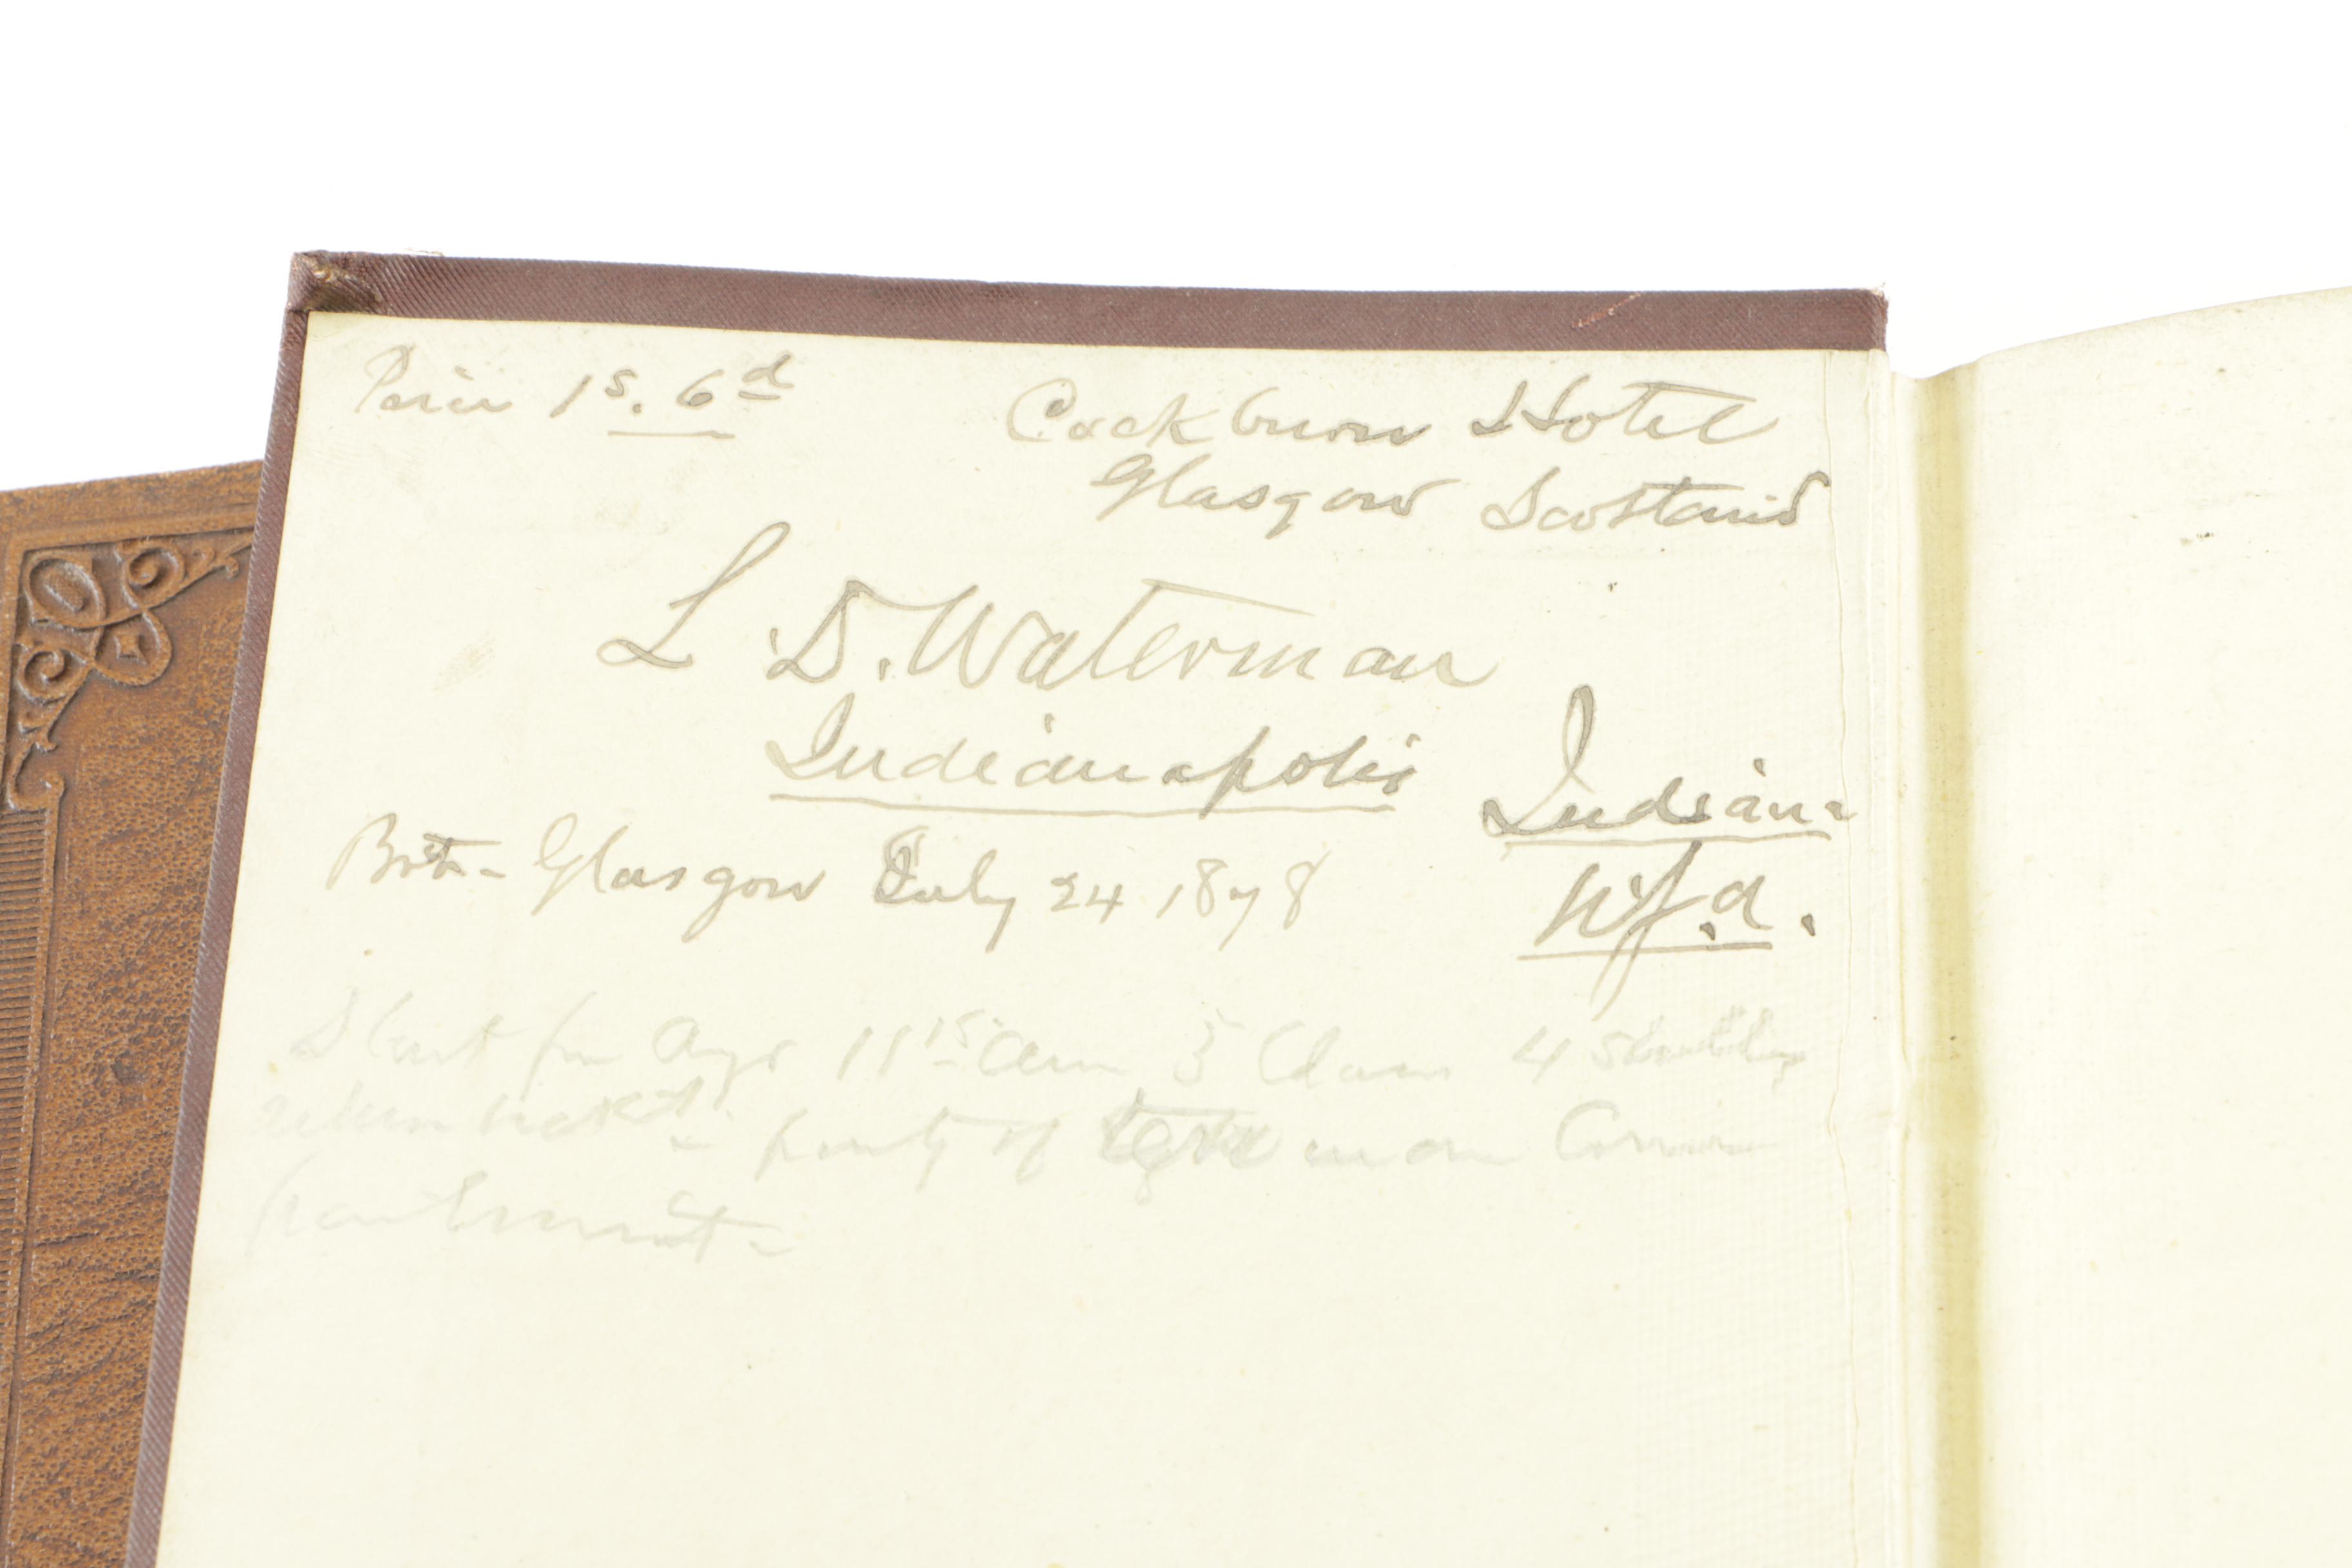 Price 1s. 6d
Cockburn Hotel
Glasgow Scotland
L. D. Waterman
Indianapolis
Indiana
Bot - Glasgow July 24 1878
Start for Ayr 11 15 am 3 Class 4 Shilling
return ticket - party of in one